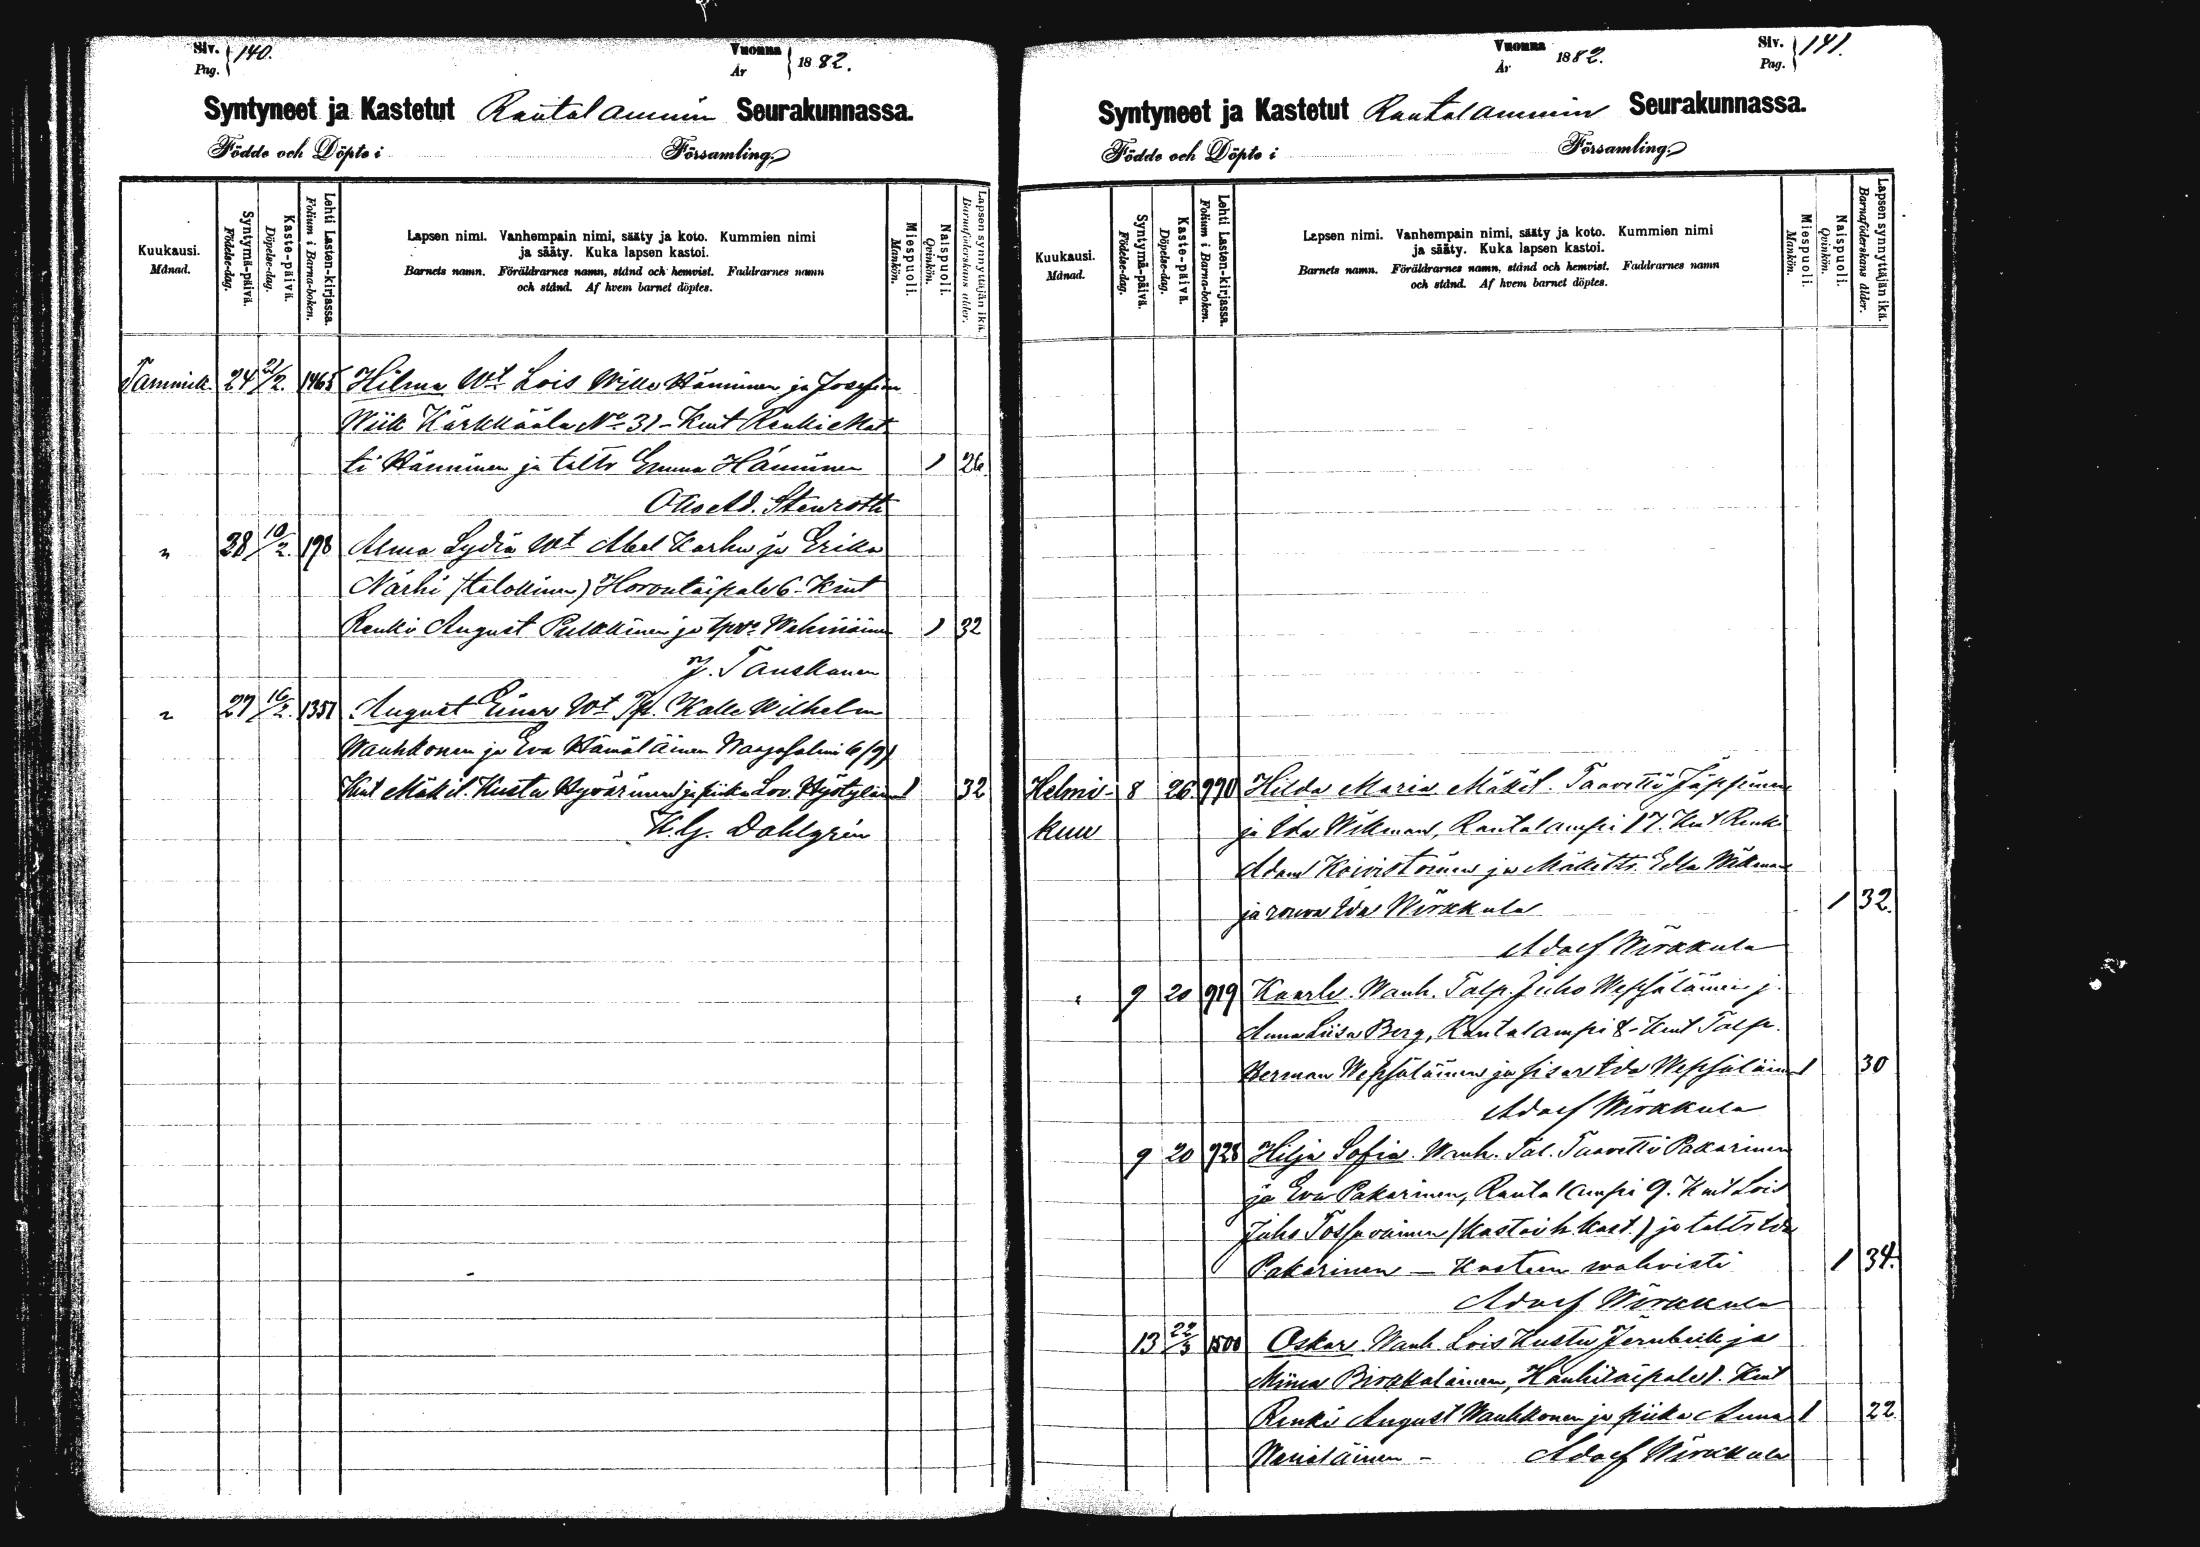 Siv. Pag. 140.
Vuonna År 1882.
Syntyneet ja Kastetut Rautalammin Seurakunnassa.
Födde och Döpte i Församling.
Kuukausi. Månad.
Syntymä-päivä. Födelse-dag.
Kaste-päivä. Döpelse-dag.
Lehti Lasten-kirjassa. Folium i Barna-boken.
Lapsen nimi. Vanhempain nimi, sääty ja koto. Kummien nimi
ja sääty. Kuka lapsen kastoi.
Barnets namn. Föräldrarnes namn, stånd och hemvist. Faddrarnes namn
och stånd. Af hvem barnet döptes.
Miespuoli. Mankön.
Naispuoli. Qvinkön.
Lapsen synnyttäjän ikä. Barnaföderskans ålder.
Tammik. 24 21/2. 1465 Hilma Wt Lois Wille Hänninen ja Josefin
Wiik Kärkkäälä No 31 - Kmt Renki Mat
ti Hänninen ja taltr Emma Hänninen 1 26
Otto Ad. Stenroth
" 28 10/2. 198 Alma Lydia Wt Abel Karhu ja Erika
Närhi (talollinen) Horontaipale 6 - Kmt
Renki August Pulkkinen ja 1 32
J. Tanskanen
" 27 16/2. 1351 August Einar Wt Tp. Kalle Wilhelm
Wauhkonen ja Eva Hämäläinen 6/7)
Kmt Mäkit. Kusta Hyvärinen ja piika Lov. 1 32
K. G. Dahlgrén
Vuonna År 1882.
Siv. Pag. 141.
Syntyneet ja Kastetut Rautalammin Seurakunnassa.
Födde och Döpte i Församling.
Kuukausi. Månad.
Syntymä-päivä. Födelse-dag.
Kaste-päivä. Döpelse-dag.
Lehti Lasten-kirjassa. Folium i Barna-boken.
Lapsen nimi. Vanhempain nimi, sääty ja koto. Kummien nimi
ja sääty. Kuka lapsen kastoi.
Barnets namn. Föräldrarnes namn, stånd och hemvist. Faddrarnes namn
och stånd. Af hvem barnet döptes.
Miespuoli. Mankön.
Naispuoli. Qvinkön.
Lapsen synnyttäjän ikä. Barnaföderskans ålder.
Helmi- 8 26. 970 Hilda Maria Mäkit. Taavetti Jäppinen
kuu ja Ida Wikman, Rautalampi 17. Kmt Renki
Adam Koivistoinen ja Mäkittr. Edla Wikman
ja rouva Ida Wirkkula 1 32.
Adolf Wirkkula
" 9 20 919 Kaarlo. Wanh. Talp. Juho Wepsäläinen j.
Anna Liisa Berg, Rautalampi 8 - Kmt Talp.
Herman Wepsäläinen ja sisar Ida Wepsäläinen 1 30
Adolf Wirkkula
9 20 928 Hilja Sofia. Wanh. Tal. Taavetti Pakarinen
ja Eva Pakarinen, Rautalampi 9. Kmt Lois
Juho Tossavainen ja taltr Ida
Pakarinen — Kasteen wahvisti 1 34.
Adolf Wirkkula
13 22/3 1500 Oskar. Wanh. Lois Kustu ja
Miina Hanhitaipale 1. Kmt
Renki August Wauhkonen ja piika Anna 1 22.
- Adolf Wirkkula